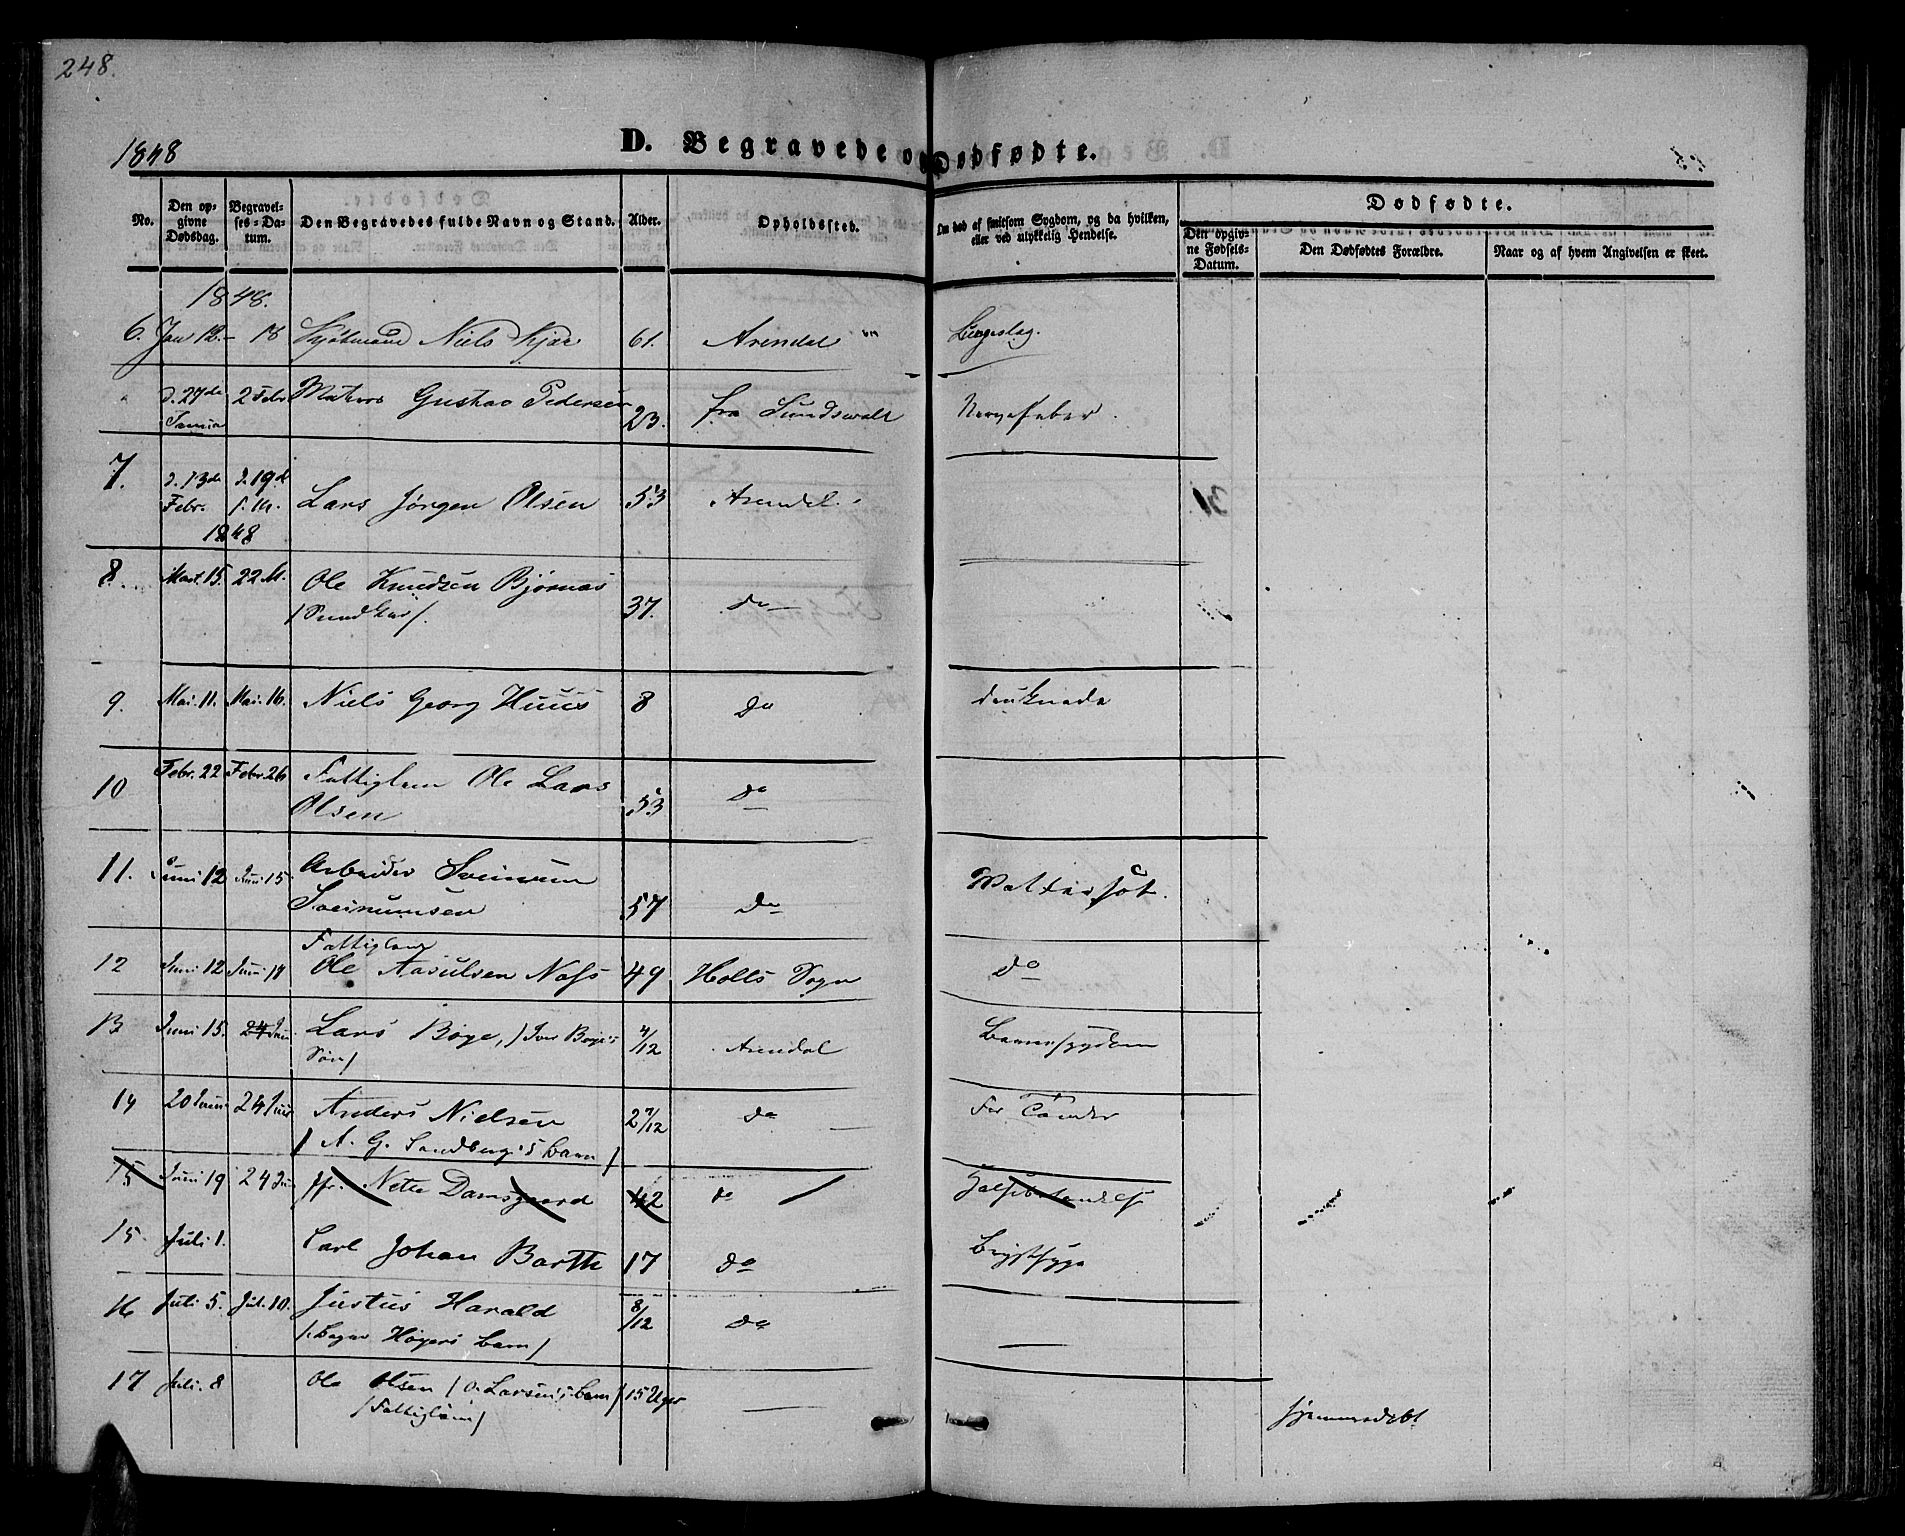 248.
1848
D. Begravede og Dødfødte.
No.
Den opgivne Dødsdag.
Begravelses-Datum.
Den Begravedes fulde Navn og Stand.
Alder.
Opholdssted.
Om død af smitsom Sygdom, og da hvilken, eller ved ulykkelig Hendelse.
Dødfødte.
Den opgivne Fødsels-Datum.
Den Dødfødtes Forældre.
Naar og af hvem Angivelsen er skeet.
1848.
6. Jan 12. - 18 Niels Kjær 61. Arendal
d. 27de 2 Febr Matros Gustav Pedersen 23. fra Sundswalt Nervefeber.
Janua
7. d. 13de d. 19de
Febr. Lars Jørgen Olsen 53 Arendal.
1848
8. Mart. 15. 22 M. Ole Knudsen Bjørnaas 37. do
9. Mai. 11. Mai. 16. Niels Georg Huus 8 do druknede
10 Febr. 22 Febr. 26 Fattiglem Ole Lars
Olsen 53 do
11. Juni 12 Juni 15 Arbeider
57 do Wattersot.
12 Juni 12 Juni Fattiglem
Ole Aasulsen Næss 49 Holts Sogn do
13 Juni 15. 24 Juni Lars Bøye, / Iver Bøye's 4/12 Arendal Barnesygdom
Søn /
14 20 Juni 24 Juni Anders Nielsen 2 7/12 do For Tænder
/ A. G. Sandberg's barn /
15 Juni 19 24 Ju Jfr. Netta Damsgaard 42 do Halsbetændelse
15. Juli 1. Carl Johan Barth 17 do Brystsyge
16 Juli 5. Jul. 10. Justus Harald 8/12 do
Høyers barn /
17 Juli. 8 Ole Olsen / O. Larsen's barn / 15 Uger
/ Fattiglem / hjemmedøbt